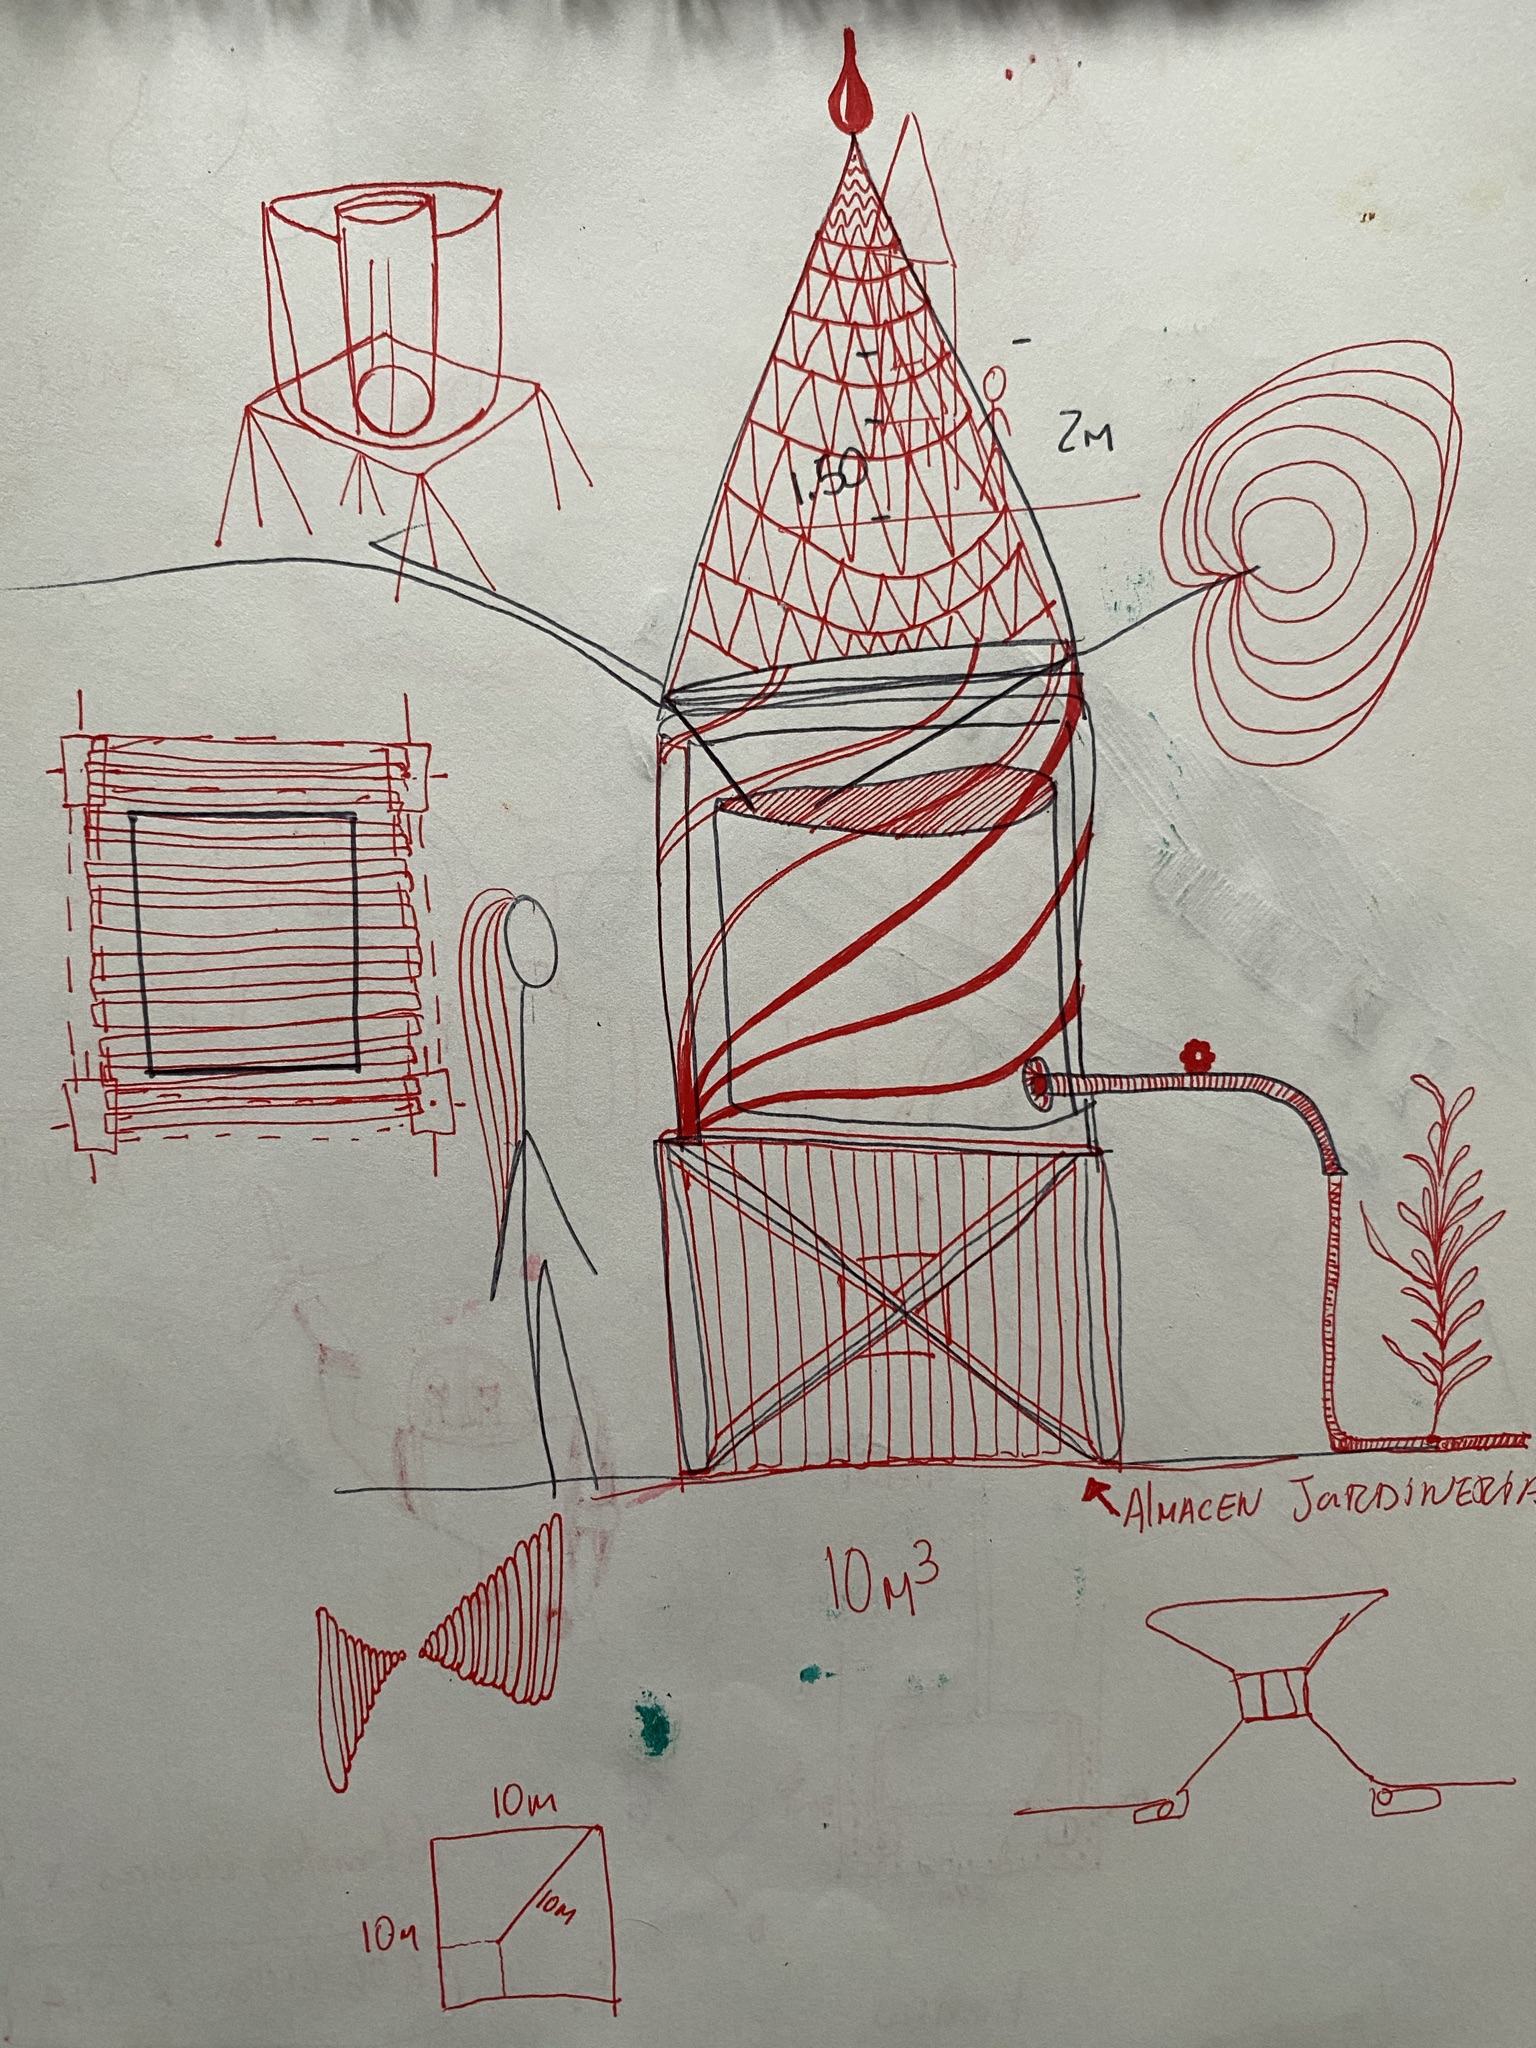 2M
1.50
ALMACEN JARDINERIA
10M³
10M
10M
10M